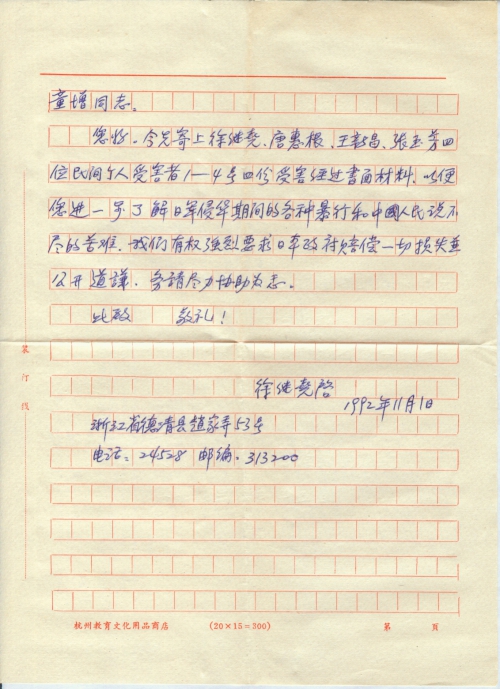 童增同志。
您好。今先寄上徐继尧、唐惠根、王新昌、张玉芳四
位民间个人受害者1—4号四份受害经过书面材料，以便
您进一步了解日军侵华期间的各种暴行和中國人民说不
尽的苦难。我们有权强烈要求日本政府赔偿一切损失并
公开道謙，务請尽力协助为志。
此致 敬礼！
徐继尧啓
1992年11月1日
浙江省德清县趙家弄53号
电话：24528 邮编．313200
装订线
杭州教育文化用品商店 (20×15=300) 第 页